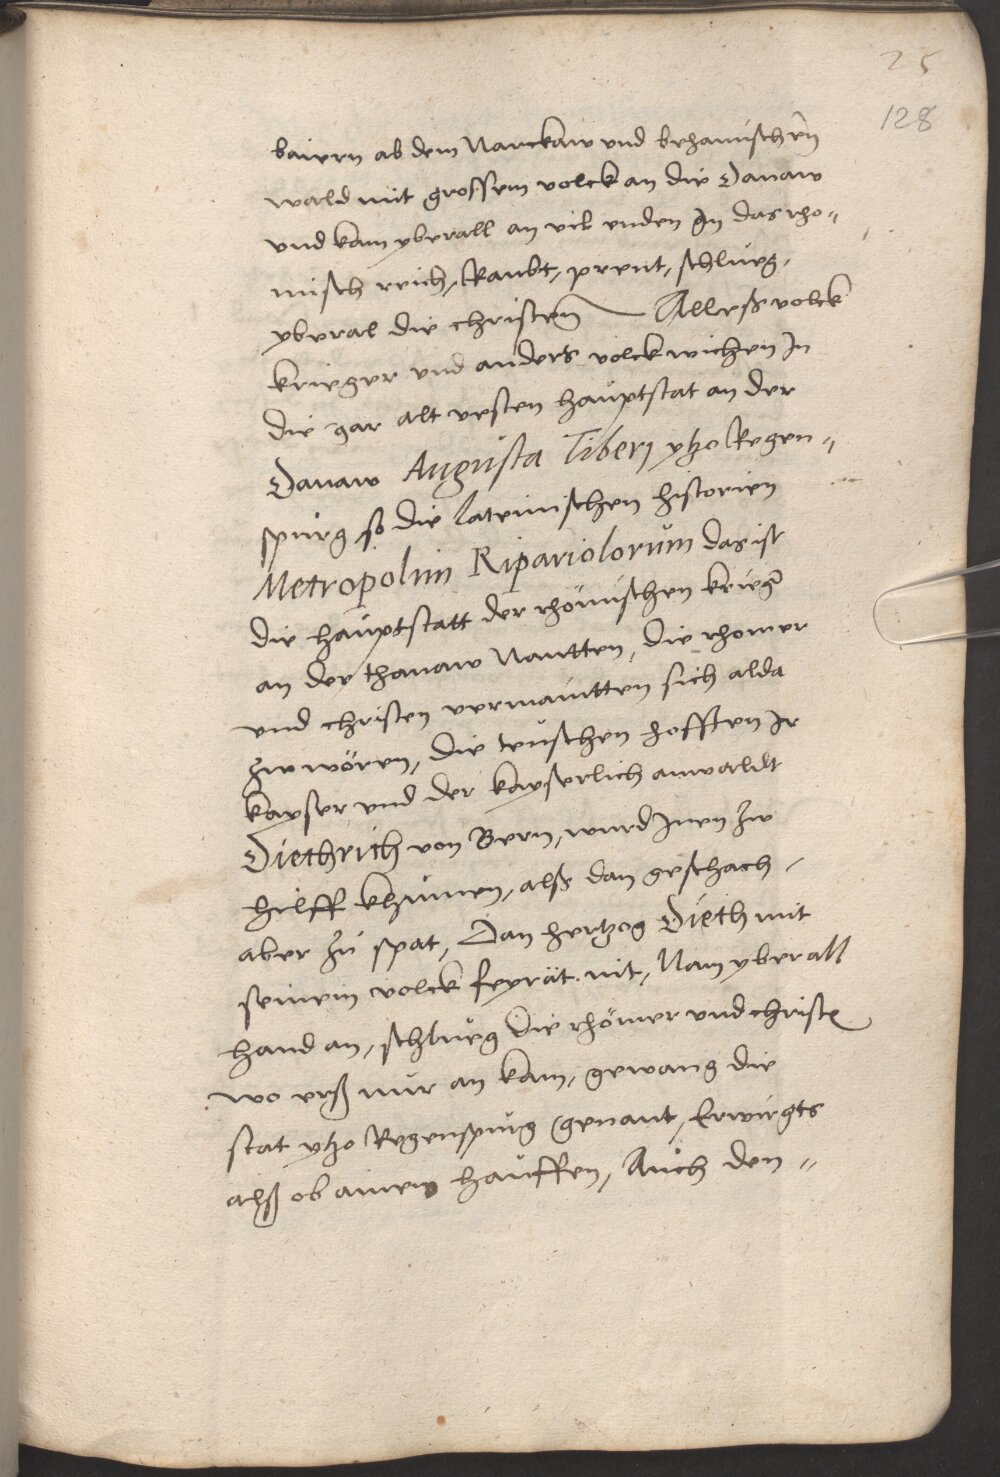 25
128
baiern ab dem Narckaw und behamischen
wald mit grossem volck an die Danaw
und kam yberall an vil enden In das rho„
misch reich, Raubt, prent, schlueg,
yberal die christen — Alless volck
krieger und anders volck wichen In
die gar alt vesten hauptstat an der
Danaw Augusta Tiberj ytzo Regen„
spurg so die lateinischen historien
Metropolim Ripariolorum das ist
die hauptstatt der rhömischen krieg
an der thanaw Nantten, die rhomer
und christen vermaintten sich alda
zu wören, die teuschen hofften Ir
kayser und der kayserlich anwaldt
Diethrich von Bern, wurd Inen zu
hilff khumen, alss dan geschach,
aber zu spat, Dan hertzog Dieth mit
seinem volck feyrät nit, Nam yberall
hand an, schlueg die rhömer und christen
wo erss nur an kam, gewang die
stat ytzo Regenspurg genant, Erwurgts
alss ob ainem hauffen, Auch den„